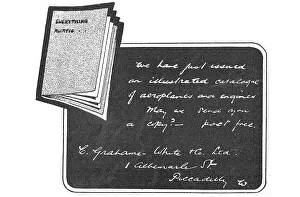 EVERYTHING
We have just issued
an illustrated catalogue
of aeroplanes and engines
May we send you
a copy? — post free.
C. Grahame-White & Co. Ltd.
1 Albemarle St
Piccadilly W.